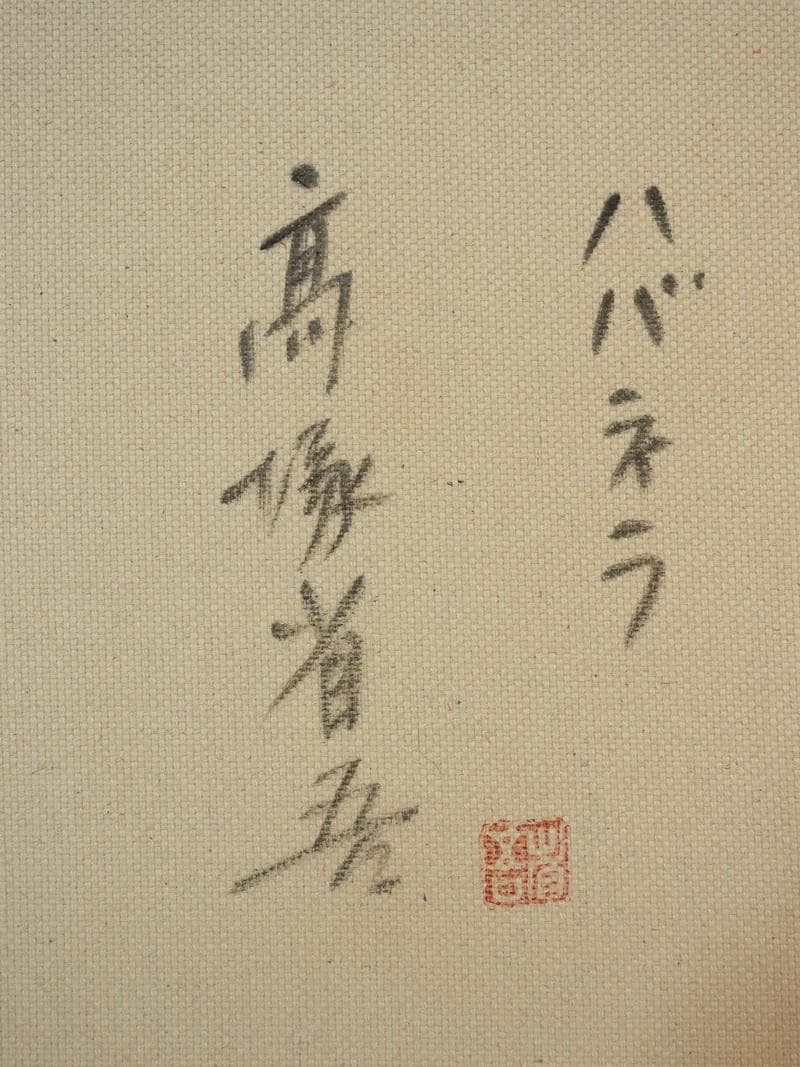 ハバネラ
高塚省吾
省吾